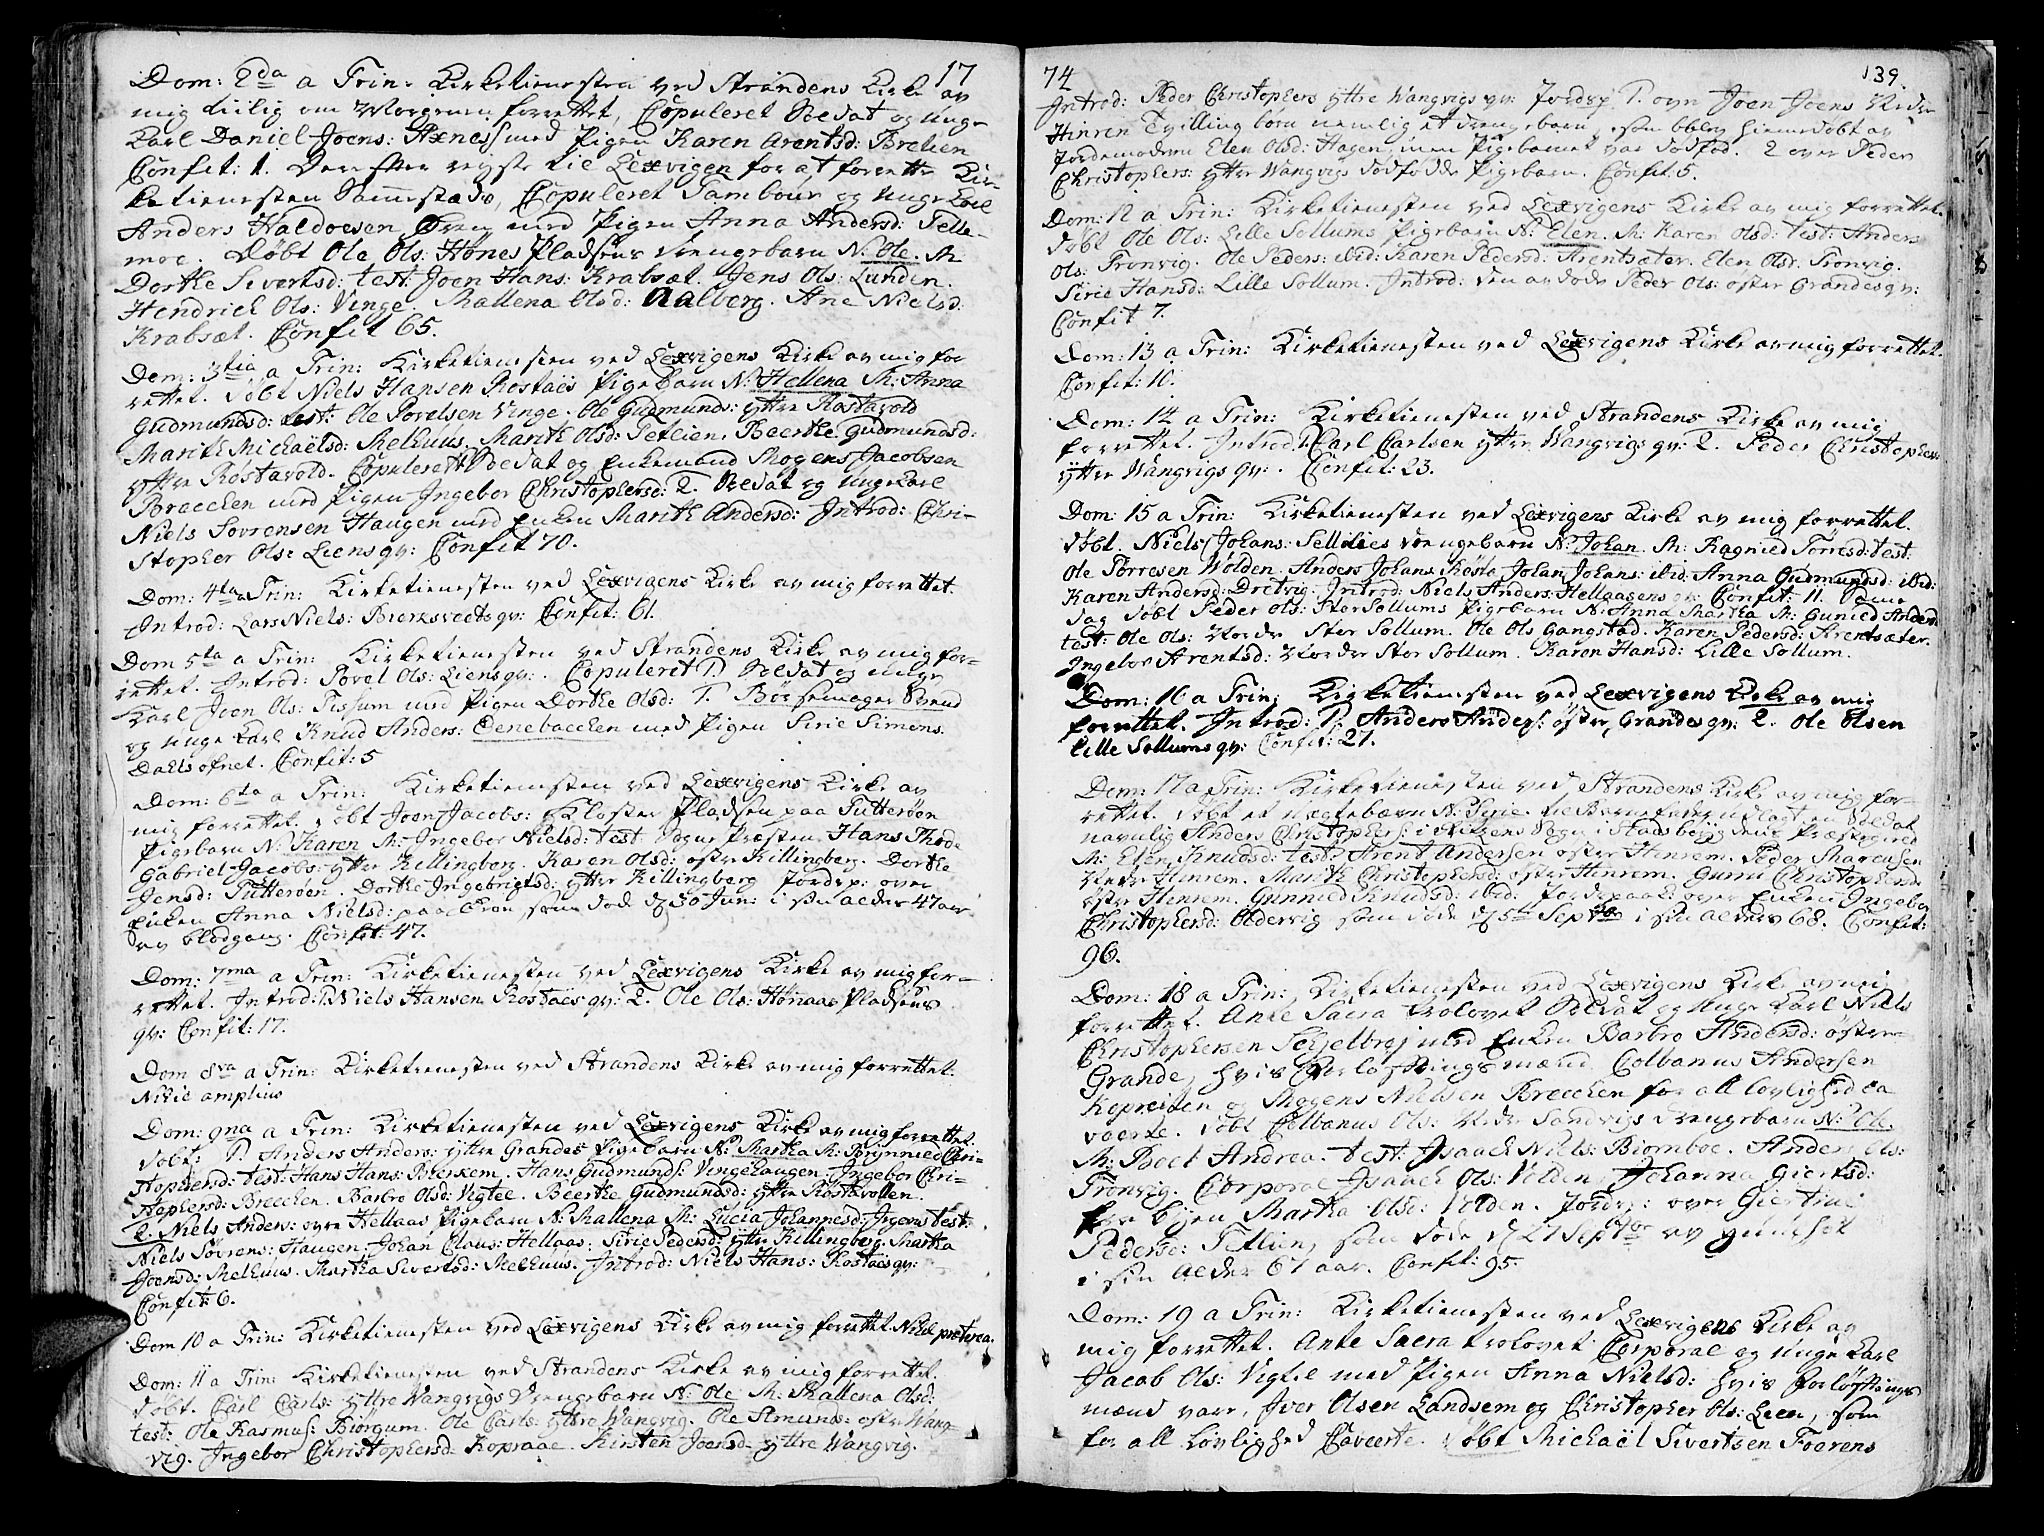 17
Dom: 2da a Trin: Kirketienesten ved Strandens Kirke av
mig tiilig om Morgenen forrettet, Copuleret Soldat og Unge
Karl Daniel Joens: Axnes med Pigen Karen Arentsd: Brelien
Confit: 1. Derefter reyste til Lexvigen for at forrette Kir-
ketienesten Sammestæds, Copuleret Tambour og Unge Karl
Anders Haldoesen Øren med Pigen Anna Andersd: Telle-
moe. Døbt Ole Ols: Hønes Pladsens Drengebarn N: Ole. M:
Dorthe Sivertsd: test: Joen Hans: Krabsæt. Jens Ols: Lunden.
Hendrich Ols: Vinge. Mallena Olsd: Aalberg. Ane Nielsd:
Krabsæt. Confit 65.
Dom: 3tia a Trin: Kirketienesten ved Lexvigens Kirke av mig for
rettet. Døbt Niels Hansen Rostaes Pigebarn N: Hellena M: Anna
Gudmundsd: test: Ole Povelsen Vinge. Ole Gudmunds: yttre Rostavold
Marith Michaëlsd: Melhuus. Marith Olsd: Tetlien. Beerthe Gudmundsd:
yttre Røstavold. Copuleret 1. Soldat og Enkemand Mogens Jacobsen
Bracchen med Pigen Ingebor Christophersd: 2. Soldat og Unge Karl
Niels Sørensen Haugen med Enken Marith Andersd: Introd: Chri-
stopher Ols: Liens qv: Confit 70.
Dom: 4ta a Trin: Kirketienesten ved Lexvigens Kirke av mig forrettet.
Introd: Lars Niels: Bierksveets qv: Confit: 61.
Dom 5ta a Trin: Kirketienesten ved Strandens Kirke av mig for-
rettet. Introd: Povel Ols: Liens qv: Copuleret 1. Soldat og Unge
Karl Joen Ols: Tissum med Pigen Dorthe Olsd: 2. Bøssemager Svend
og Unge Karl Knud Anders: Denebacchen med Pigen Sirie Simons.
Dahlsofnet. Confit: 5
Dom: 6ta a Trin: Kirketienesten ved Lexvigens Kirke av
mig forrettet. Døbt Joen Jacobs: Kloster Pladsen paa Tutterøen
Pigebarn N: Karen M: Ingebor Nielsd: test: Sogne Præsten Hans Thode
Gabriel Jacobs: yttre Killingberg. Karen Olsd: østre Killingberg. Dorthe
Jensd: Tutterøen. Dorthe Ingebrigtsd: yttre Killingberg Jordsp: over
Enken Anna Nielsd: paa som døde d 30 Jun: i sin alder 47 aar
av blodgang. Confit: 47.
Dom: 7ma a Trin: Kirketienesten ved Lexvigens Kirke av mig for-
rettet. Introd: 1. Niels Hansen Rostaes qv: 2. Ole Ols: Hønnaas Pladsens
qv: Confit: 17.
Dom 8va a Trin: Kirketienesten ved Strandens Kirke av mig forrettet.
Nihil amplius
Dom: 9na a Trin: Kirketienesten ved Lexvigens Kirke av mig forrettet.
Døbt: 1. Anders Anders: yttre Grandes Pigebarn N: Martha M: Brynnied Chri-
stophersd: test: Hans Hans: Bierkem. Hans Gudmunds: Vingehaugen. Ingebor Chri-
stophersd: Brecchen. Barbro Olsd: Vigtel. Beerthe Gudmundsd: yttre Røstavollen.
2. Niels Anders: øvre Hellaas Pigebarn N: Mallena M: Lucia Johannesd: Irgens test:
Niels Sørens: Haugen. Johan Claus: Hellaas. Sirie Pedersd: yttre Killingberg. Martha
Joensd: Melhuus. Martha Sivertsd: Melhuus. Introd: Niels Hans: Rostaes qv:
Confit: 6.
Dom 10 a Trin: Kirketienesten ved Lexvigens Kirke av mig forrettet Nihil præterea.
Dom: 11 a Trin: Kirketienesten ved Strandens Kirke av mig forrettet.
Døbt. Carl Carls: yttre Wangvigs Drengebarn N: Ole M: Mallena Olsd:
test: Ole Rasmus: Biørgum. Ole Carls: yttre Wangvig. Ole Simunds: østre Wang-
vig. Ingebor Christophersd: Kopraae. Kirsten Joensd: yttre Wangvig.
74
139.
Introd: Peder Christophers yttre Wangvigs qv: Jordsp: 1. over Joen Joens Nedre
Hinren Tvilling børn nemlig et drengebarn, som blev hiemedøbt av
Jordemoderen Elen Olsd: Hagen, men Pigebarnet var dødfød. 2 over Peder
Christophers: yttre Wangvigs dødfødde Pigebarn. Confit: 5.
Dom: 12 a Trin: Kirketienesten ved Lexvigens Kirke av mig forrettet.
Døbt Ole Ols: Lille Sollums Pigebarn N: Elen. M: Karen Olsd: test: Anders
Ols: Tronvig. Ole Peders: ibid: Karen Pedersd: Arentsæter. Elen Olsd: Tronvig.
Sirie Hansd: Lille Sollum. Introd: den avdøde Peder Ols: østre Grandes qv:
Confit 7.
Dom: 13 a Trin: Kirketienesten ved Lexvigens Kirke av mig forrettet.
Confit: 10.
Dom: 14 a Trin: Kirketienesten ved Strandens Kirke av mig
forrettet. Introd: 1. Carl Carlsen yttre Wangvigs qv: 2. Peder Christophers:
yttre Wangvigs qv: . Confit: 23.
Dom: 15 a Trin: Kirketienesten ved Lexvigens Kirke av mig forrettet.
Døbt. Niels Johans: Sellilies Drengebarn N: Johan. M: Ragnied Torresd: test:
Ole Torresen Wolden. Anders Johans: Røste. Johan Johans: ibid: Anna Gudmundsd: ibid:
Karen Andersd: Dretvig. Introd: Niels Anders: Hellaasens qv: Confit: 11. Samme
dag døbt Peder Ols: Stor Sollums Pigebarn N: Anna Martha M: Gunied Andersd:
test: Ole Ols: Nordre Stor Sollum. Ole Ols Gangstad. Karen Pedersd: Arentsæter.
Ingebor Arentsd: Nordre Stor Sollum. Karen Hansd: Lille Sollum.
Dom: 16 a Trin: Kirketienesten ved Lexvigens Kirke av mig
forrettet. Introd: 1. Anders Anders: østre Grandes qv: 2. Ole Olsen
Lille Sollums qv: Confit: 27.
Dom: 17 a Trin: Kirketienesten ved Strandens Kirke av mig for-
rettet. Døbt et uægtebarn N: Sirie. til Barnefader udlagt en Soldat
navnlig Anders Christophers: i Ritzens Sogn i Stadsbøygdens Præstegield
M: Elen Knudsd: test: Arent Andersen østre Hinrem. Peder Marcusen
Nedre Hinrem. Marith Christophersd: østre Hinrem. Guru Christophersd:
østre Hinrem. Gunnild Knudsd: ibid: Jordspaak: over Enken Ingebor
Christophersd: Oldervig som døde d 5te Sept: i sin alders 68. Confit:
96.
Dom: 18 a Trin: Kirketienesten ved Lexvigens Kirke av mig
forrettet. Ante Sacra trolovet Soldat og Unge Karl Niels
Christophersen Schjelbrej med Enken Barbro Andersd: østre
Grande, hvis Forløftningsmænd Colbanus Andersen
Kopreiten og Mogens Nielsen Brecchen for all lovlighed ca
veerte. Døbt Colbanus Ols: Nedre Sandvigs Drengebarn N: Ole.
M: Boel Andrea. test: Isaach Niels: Biørnboe. Anders Ols:
Tronvig. Corporal Isaach Ols: Volden. Johanna Giertsd:
Martha Olsd: Volden. Jordsp: over Giertrue
Pedersd: Tetlien, som døde d 27 Septbr av
i sin alder 67 aar. Confit: 95.
Dom: 19 a Trin: Kirketienesten ved Lexvigens Kirke av
mig forrettet. Ante Sacra trolovet Corporal og Unge Karl
Jacob Ols: Vigtel med Pigen Anna Nielsd: hvis forløftnings
mænd vare, Iver Olsen Landsem og Christopher Ols: Leen, som
for all Lovlighed Caveerte. Døbt Michaël Sivertsen Foerens